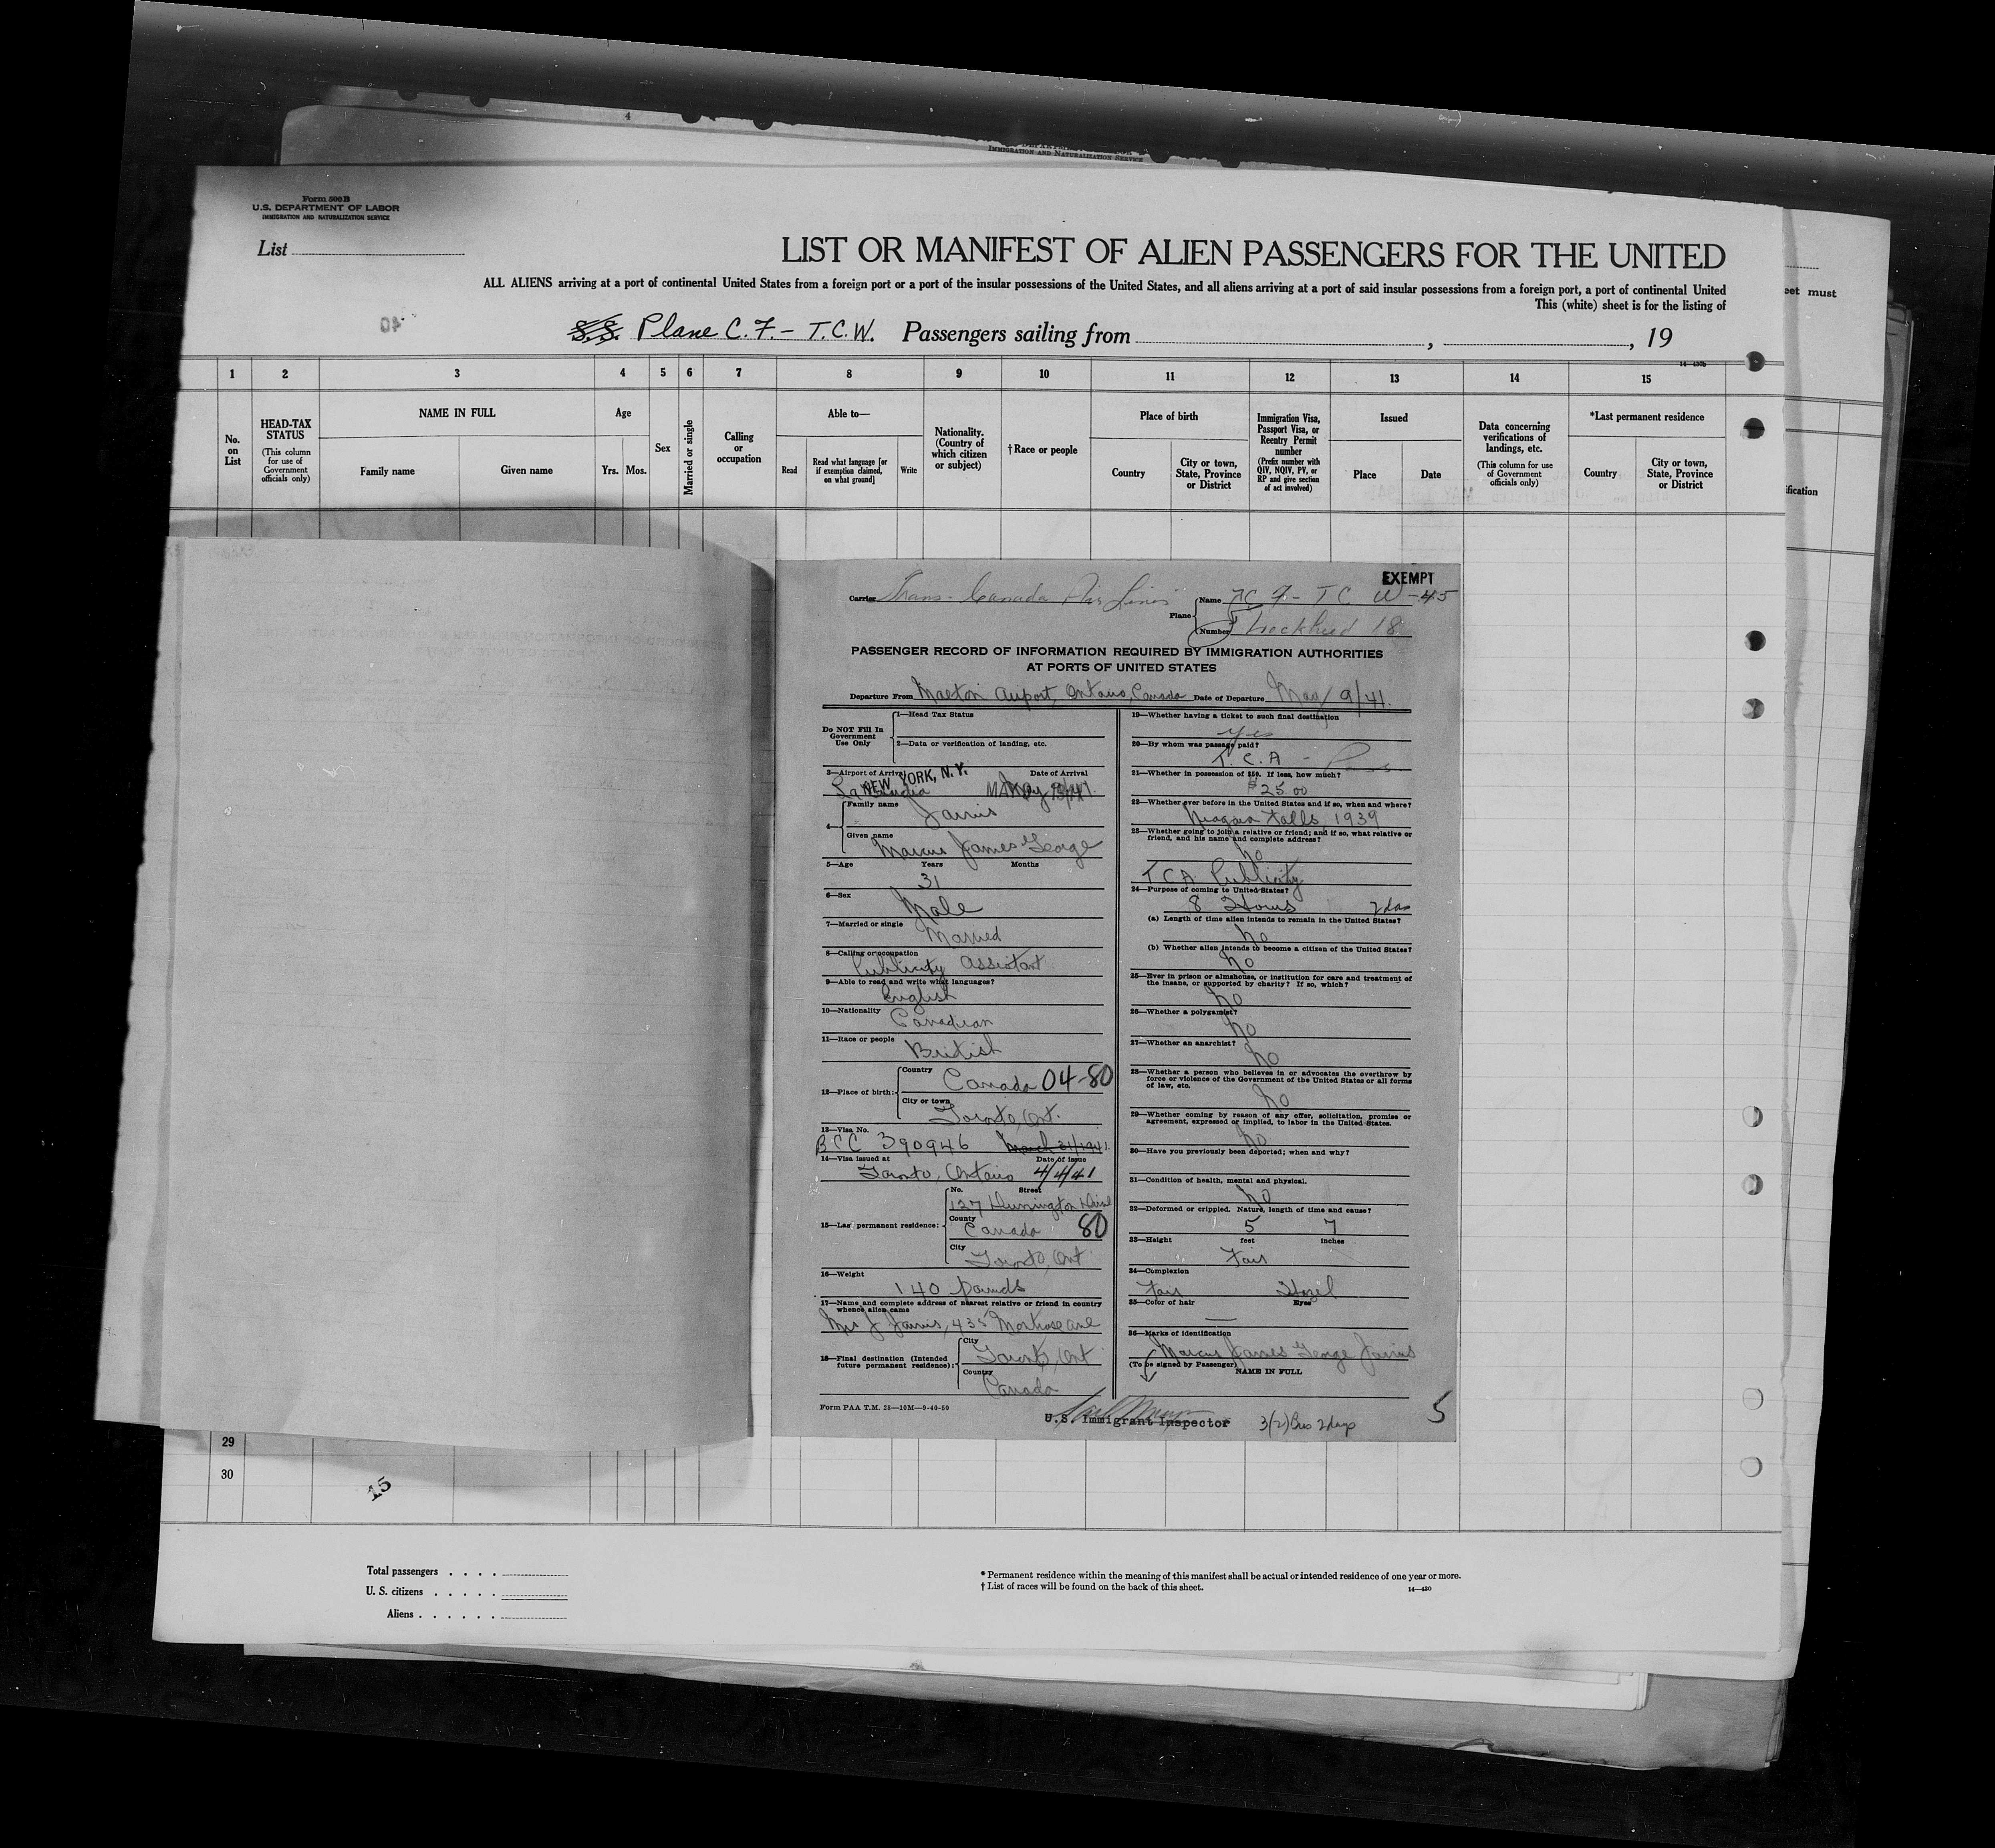 4
IMMIGRATION AND NATURALIZATION SERVICE
Form 500B
U.S. DEPARTMENT OF LABOR
IMMIGRATION AND NATURALIZATION SERVICE
List
LIST OR MANIFEST OF ALIEN PASSENGERS FOR THE UNITED
ALL ALIENS arriving at a port of continental United States from a foreign port or a port of the insular possessions of the United States, and all aliens arriving at a port of said insular possessions from a foreign port, a port of continental United
This (white) sheet is for the listing of
eet must
40
S.S. Plane C.F. - T.C.W. Passengers sailing from , , 19
1 2 3 4 5 6 7 8 9 10 11 12 13 14 15
No. on List
HEAD-TAX STATUS
(This column for use of Government officials only)
NAME IN FULL
Family name Given name
Age
Yrs. Mos.
Sex
Married or single
Calling or occupation
Able to—
Read
Read what language [or if exemption claimed, on what ground]
Write
Nationality. (Country of which citizen or subject)
†Race or people
Place of birth
Country
City or town, State, Province or District
Immigration Visa, Passport Visa, or Reentry Permit number
(Prefix number with QIV, NQIV, PV, or RP and give section of act involved)
Issued
Place Date
Data concerning verifications of landings, etc.
(This column for use of Government officials only)
*Last permanent residence
Country
City or town, State, Province or District
ification
EXEMPT
Carrier Trans-Canada Air Lines
Plane Name C F - T C W -45
Number Lockheed 18
PASSENGER RECORD OF INFORMATION REQUIRED BY IMMIGRATION AUTHORITIES
AT PORTS OF UNITED STATES
Departure From Malton Airport, Ontario, Canada Date of Departure May 9/41.
Do NOT Fill In Government Use Only
1—Head Tax Status
2—Data or verification of landing, etc.
3—Airport of Arrival Date of Arrival
NEW YORK, N.Y.
La Guardia May 9/41
4—
Family name
Jarvis
Given name
Marcus James George
5—Age Years Months
31
6—Sex
Male
7—Married or single
Married
8—Calling or occupation
Publicity Assistant
9—Able to read and write what languages?
English
10—Nationality
Canadian
11—Race or people
British
12—Place of birth:
Country
Canada 04-80
City or town
Toronto, Ont.
13—Visa No.
BCC 390946 March 31/1941
14—Visa issued at Date of issue
Toronto, Ontario 4/4/41
15—Las permanent residence:
No. Street
127 Drive
County
Canada 80
City
Toronto, Ont
16—Weight
140 pounds
17—Name and complete address of nearest relative or friend in country whence alien came
Mrs J Jarvis, 435 Montrose Ave
18—Final destination (Intended future permanent residence):
City
Toronto, Ont
Country
Canada
Form PAA T.M. 28—10M—9-40-50
19—Whether having a ticket to such final destination
yes
20—By whom was passage paid?
T.C.A - Pass
21—Whether in possession of $50. If less, how much?
$25.00
22—Whether ever before in the United States and if so, when and where?
Niagara Falls, 1939
23—Whether going to join a relative or friend; and if so, what relative or friend, and his name and complete address?
No
TCA Publicity
24—Purpose of coming to United States?
8 Hours 2 das
(a) Length of time alien intends to remain in the United States?
No
(b) Whether alien intends to become a citizen of the United States?
No
25—Ever in prison or almshouse, or institution for care and treatment of the insane, or supported by charity? If so, which?
No
26—Whether a polygamist?
No
27—Whether an anarchist?
No
28—Whether a person who believes in or advocates the overthrow by force or violence of the Government of the United States or all forms of law, etc.
No
29—Whether coming by reason of any offer, solicitation, promise or agreement, expressed or implied, to labor in the United States.
No
30—Have you previously been deported; when and why?
31—Condition of health, mental and physical.
No
32—Deformed or crippled. Nature, length of time and cause?
5 7
33—Height feet inches
Fair
34—Complexion
Fair Hazel
35—Color of hair Eyes
—
36—Marks of identification
Marcus James George Jarvis
(To be signed by Passenger)
NAME IN FULL
U.S. Immigrant Inspector
3(2) Bus 2 days
5
29
30
15
Total passengers
U. S. citizens
Aliens
* Permanent residence within the meaning of this manifest shall be actual or intended residence of one year or more.
† List of races will be found on the back of this sheet.
14—430